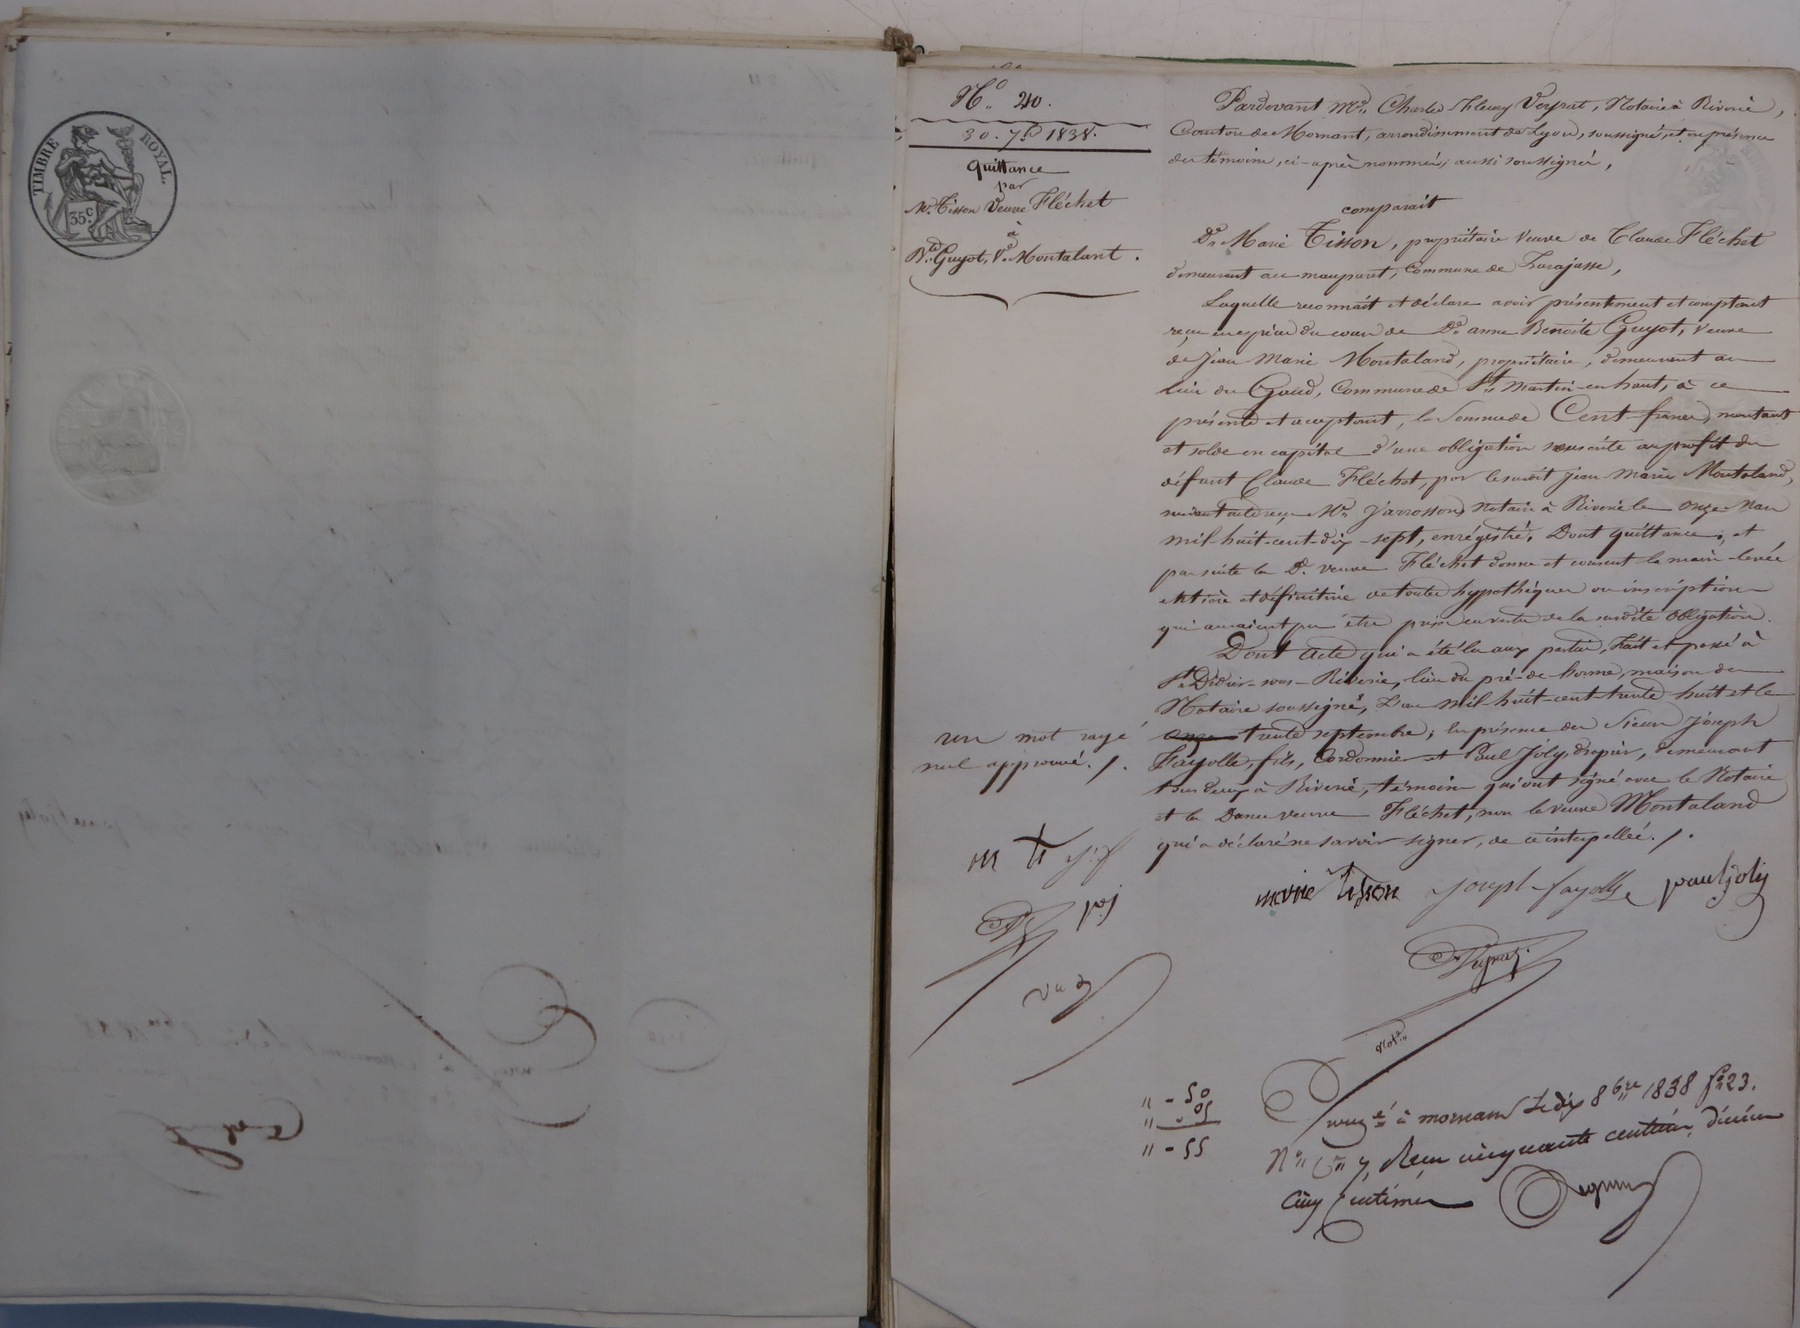 TIMBRE ROYAL.
35c.
No. 210.
30. 7bre 1838.
Quittance
par
Me. Tisson Veuve Fléchet
à
Ve. Guyot, Ve. Montalant.
Pardevant Me. Charles Fleury Veyrat, Notaire à Riverie,
Canton de Mornant, arrondissement de Lyon, soussigné, et en présence
des témoins, ci-après nommés, aussi soussignés,
comparait
De. Marie Tisson, propriétaire Veuve de Claude Fléchet
demeurant au mauparet, Commune de Larajasse,
Laquelle reconnait et déclare avoir présentement et comptant
reçu en espèces du cours de De. anne Benoite Guyot, Veuve
de Jean Marie Montaland, propriétaire, demeurant au
lieu du Goud, Commune de St. Martin-en-haut, à ce
présente et acceptant, la Somme de Cent francs, montant
et solde en capital d'une obligation souscrite au profit du
défunt Claude Fléchet, par le susdit Jean Marie Montaland,
suivant acte reçu Me. Jarrosson, Notaire à Riverie le onze Mars
mil-huit-cent-dix-sept, enrégistré. Dont quittance; et
par suite la De. veuve Fléchet donne et consent la main-levée
entière et définitive de toutes hypothèques ou inscriptions
qui auraient pu être prises en vertu de la susdite obligation.
Dont Acte qui a été lu aux parties, Fait et passé à
St. Didier-sous-Riverie, lieu du pré-de-horme, maison du
Notaire soussigné, L'an mil-huit-cent-trente huit et le
onze trente septembre; en présence des Sieurs Joseph
Fayolle, fils, Cordonnier et Paul Joly, drapier, demeurant
tous deux à Riverie, témoins qui ont signé avec le Notaire
et la Dame veuve Fléchet, non la veuve Montaland
qui a déclaré ne savoir signer, de ce interpellée. /.
un mot rayé
nul approuvé. /.
m ti j.f
p.j
marie tisson Joseph fayolle paul joly
Veyrat
Not.re
" - 50
" - 05
" - 55
Enregé. à mornant Le dix 8bre 1838 fo. 23.
No. Ce. 7 Reçu cinquante centimes, décime
Cinq Centimes